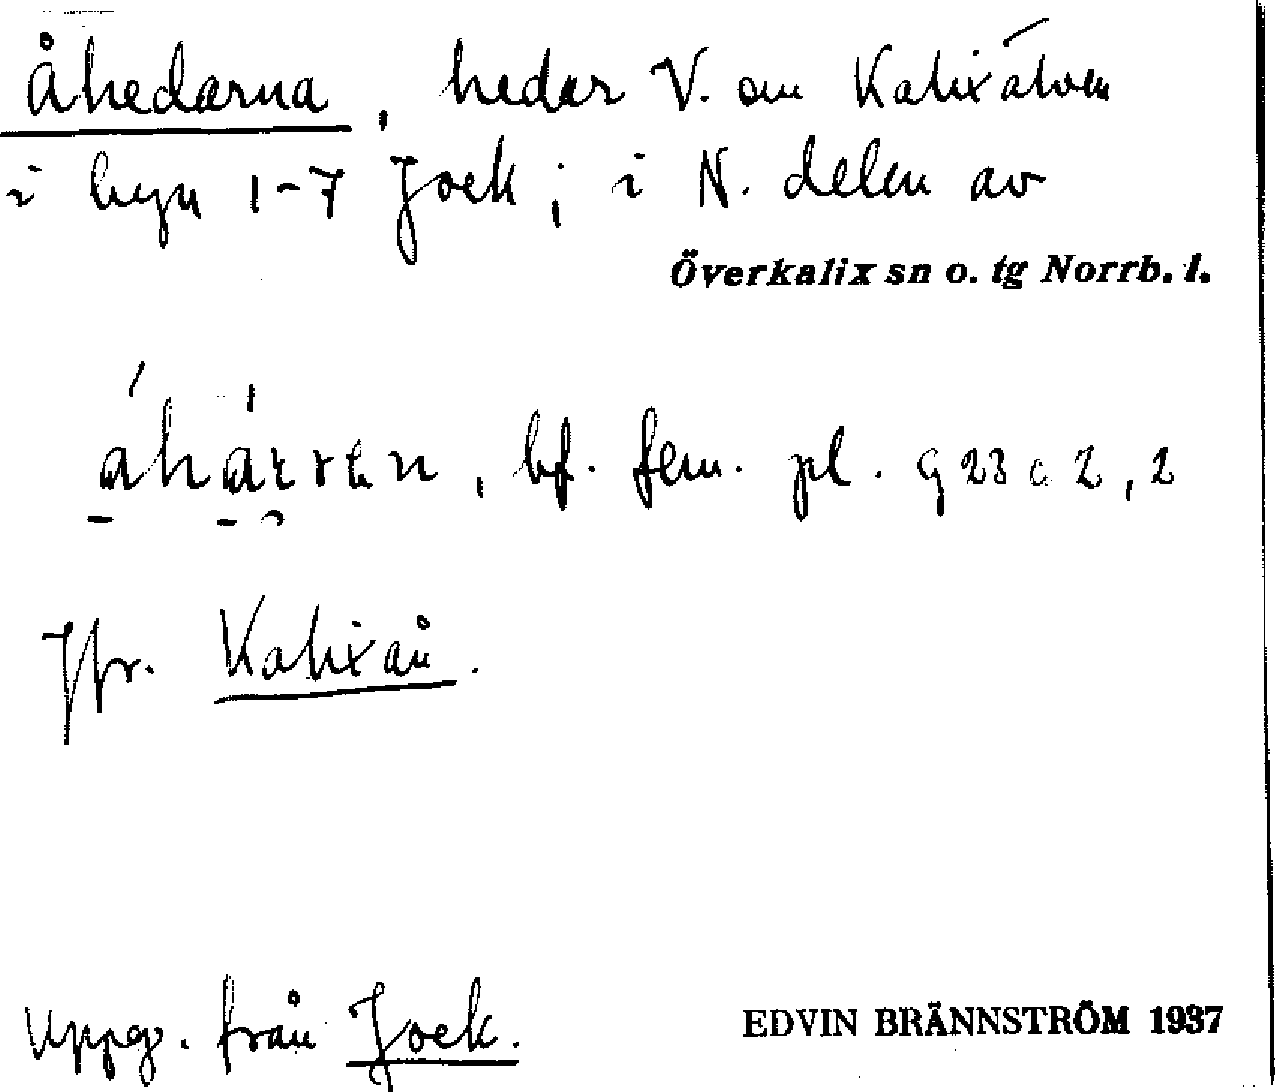 Åhedarna, hedar V. om Kalixälven
i byn 1-7 Jock; i N. delen av
Överkalix sn o. tg Norrb. l.
bf. fem. pl. G 23 c 2, 2
Jfr. Kalixån.
Uppg. från Jock.
EDVIN BRÄNNSTRÖM 1937